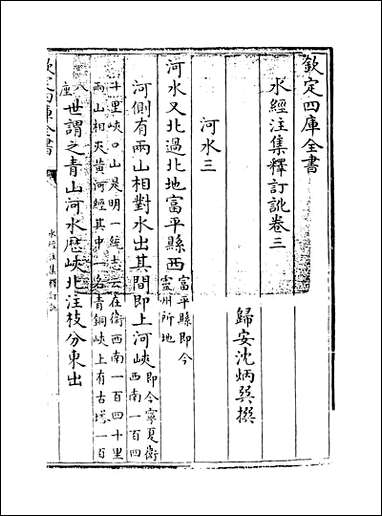 欽定四庫全書
水經注集釋訂訛卷三
歸安沈炳巽撰
河水三
河水又北過北地富平縣西富平縣即今
靈州所地
河側有兩山相對水出其間即上河峽即今寧夏衛
西南一百四
十里峽口山是明一統志云在衛西南一百四十里
兩山相夾黄河經其中一名青銅峽上有古塔一百
八
座世謂之青山河水歷峽北注枝分東出
欽定四庫全書
水經注集釋訂訛